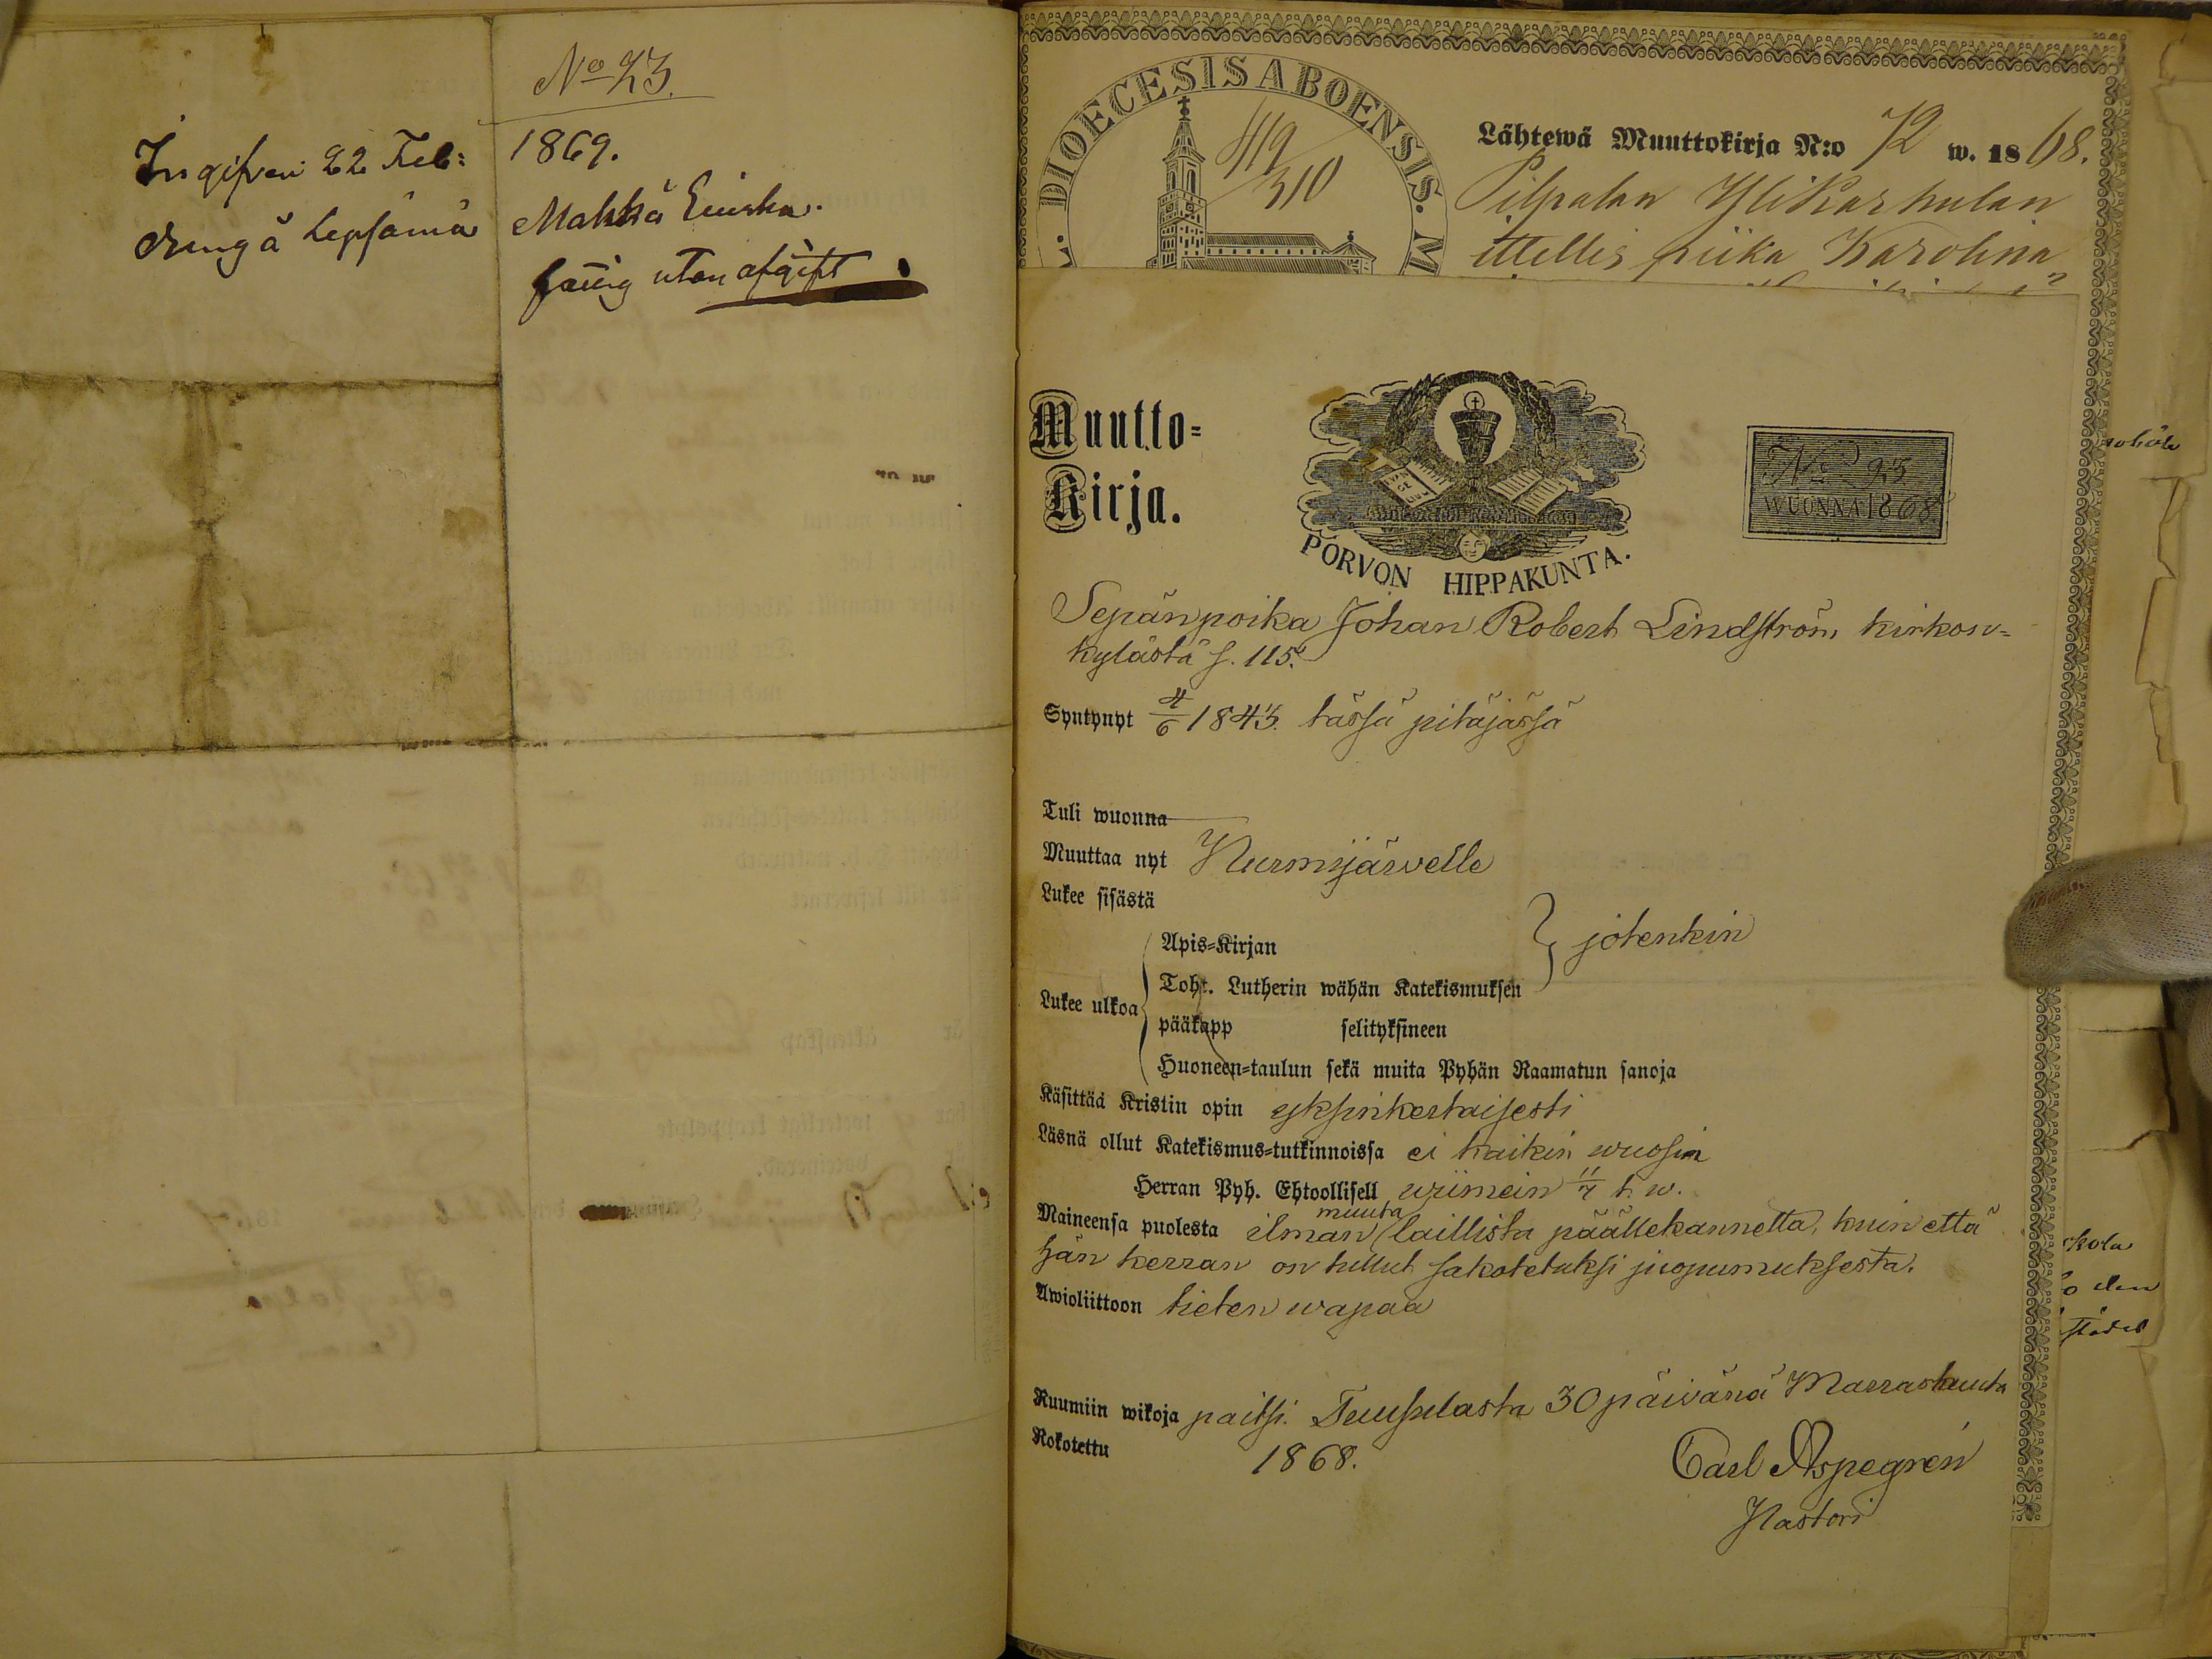 No 23.
Ingifven 22 Feb:
dräng å Lepsämä
1869.
Mahkä Euiska.
fattig utan afgift
DIOECESIS ABOENSIS. M
419
310
Lähtewä Muuttokirja N:o 72 w. 1868.
Pilpalan Ylikarhulan
ittellis piika Karolina
Muutto-
Kirja.
PORVON HIPPAKUNTA.
No 93
WUONNA 1868
Sepänpoika Johan Robert Lindström kirkon-
kylästä s. 115.
Syntynyt 4/6 1843. tässä pitäjässä
Tuli wuonna
Muuttaa nyt Nurmijärvelle
Lukee sisästä
Apis-Kirjan
jotenkin
Toht. Lutherin wähän Katekismuksen
Lukee ulkoa
pääkapp selityksineen
Huoneen-taulun sekä muita Pyhän Raamatun sanoja
Käsittää Kristin opin yksinkertaisesti
Läsnä ollut Katekismus-tutkinnoissa ei kaikin wuosin
Herran Pyh. Ehtoollisell wiimein 11/7 t. w.
Maineensa puolesta ilman muuta laillista päällekannetta, kuin että
hän kerran on tullut sakotetuksi juopumuksesta.
Awioliittoon tieten wapaa
Ruumiin wikoja paitsi. Tuusulasta 30 päivänä Marraskuuta
Rokotettu
1868.
Carl Aspegrén
Pastori